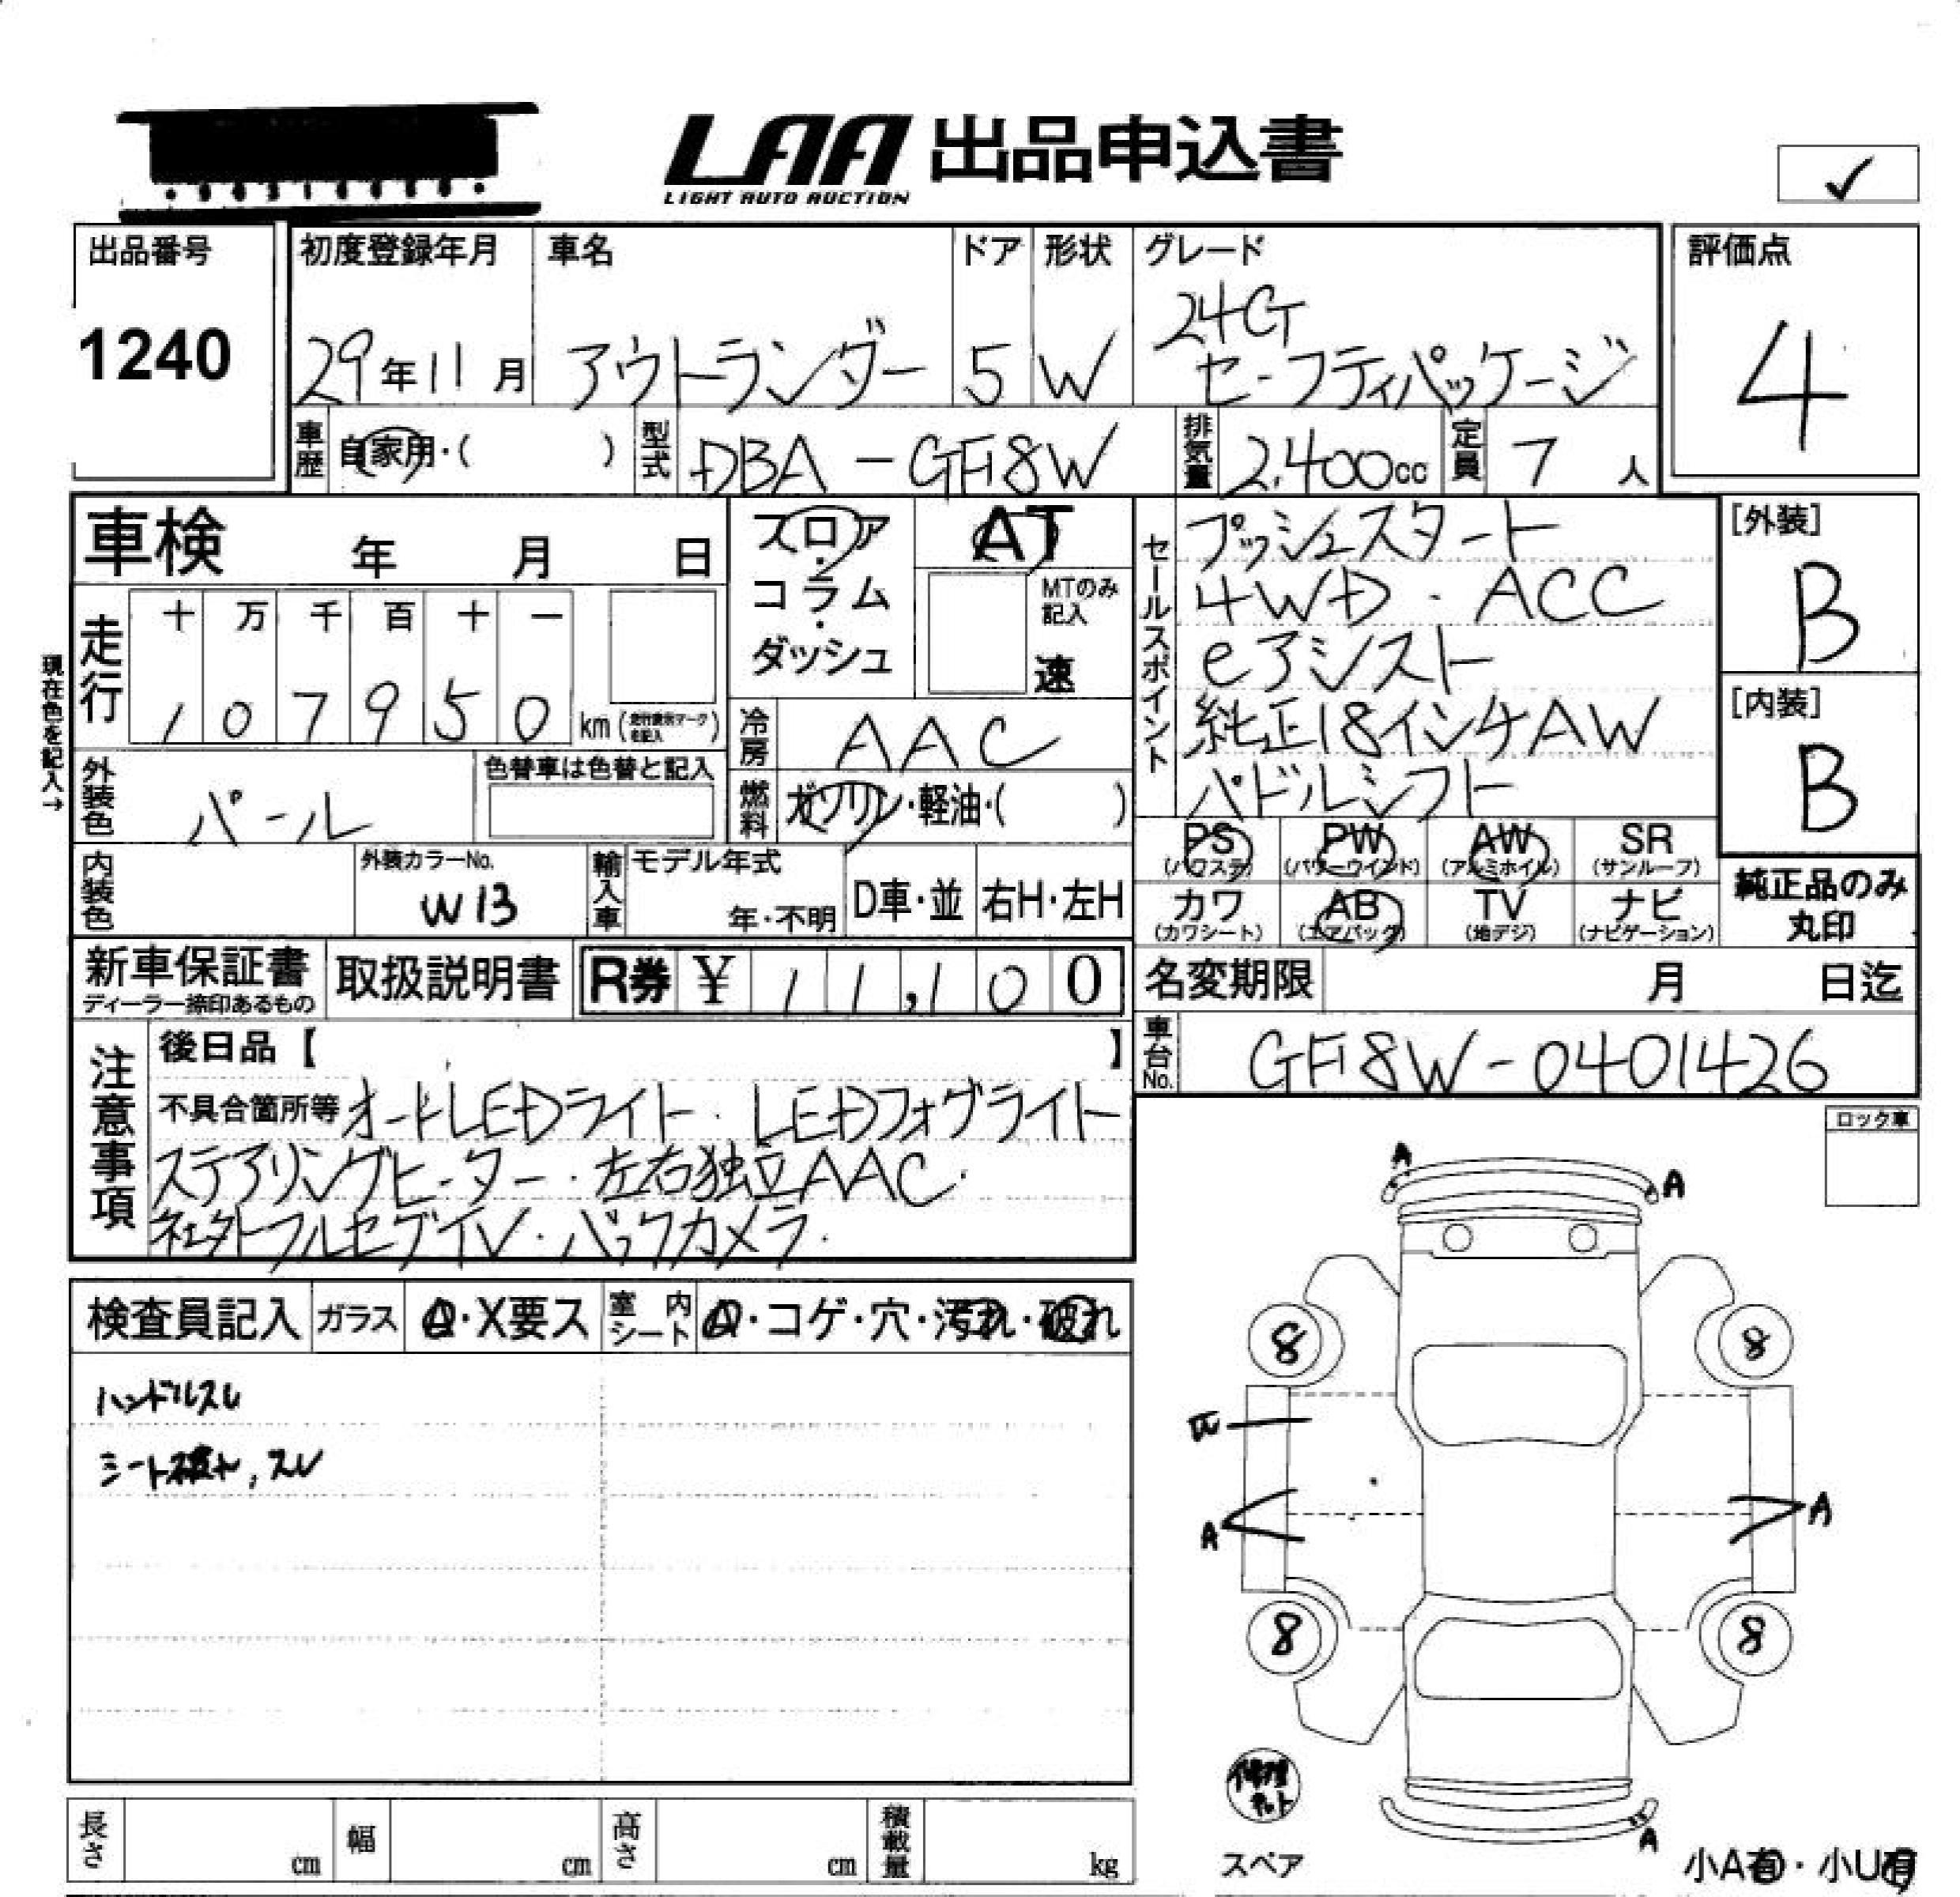 LAA 出品申込書
LIGHT AUTO AUCTION
✓
出品番号
1240
初度登録年月
29年11月
車名
アウトランダー
ドア
5
形状
W
グレード
24G
セーフティパッケージ
評価点
4
車歴
自家用・( )
型式
DBA-GF8W
排気量
2,400cc
定員
7人
車検 年 月 日
フロア・コラム・ダッシュ
AT
MTのみ記入
速
セールスポイント
プッシュスタート
4WD・ACC
eアシスト
純正18インチAW
パドルシフト
[外装]
B
[内装]
B
現在色を記入→
走行
十 万 千 百 十 一
1 0 7 9 5 0 km
冷房
AAC
外装色
パール
色替車は色替と記入
燃料
ガソリン・軽油・( )
PS (パワステ)
PW (パワーウインド)
AW (アルミホイル)
SR (サンルーフ)
カワ (カワシート)
AB (エアバッグ)
TV (地デジ)
ナビ (ナビゲーション)
純正品のみ
丸印
内装色
外装カラーNo.
W13
輸入車
モデル年式
年・不明
D車・並
右H・左H
新車保証書
ディーラー捺印あるもの
取扱説明書
R券 ¥ 11,100
名変期限 月 日迄
車台No.
GF8W-0401426
注意事項
後日品【 】
不具合箇所等 オートLEDライト・LEDフォグライト
ステアリングヒーター・左右独立AAC・
社外フルセグTV・バックカメラ・
ロック車
検査員記入
ガラス
A・X要ス
室内シート
A・コゲ・穴・汚れ・破れ
ハンドルスレ
シート破れ,スレ
A
A
8
8
W
A
A
8
8
修理キット
スペア
A
小A有・小U有
長さ cm
幅 cm
高さ cm
積載量 kg